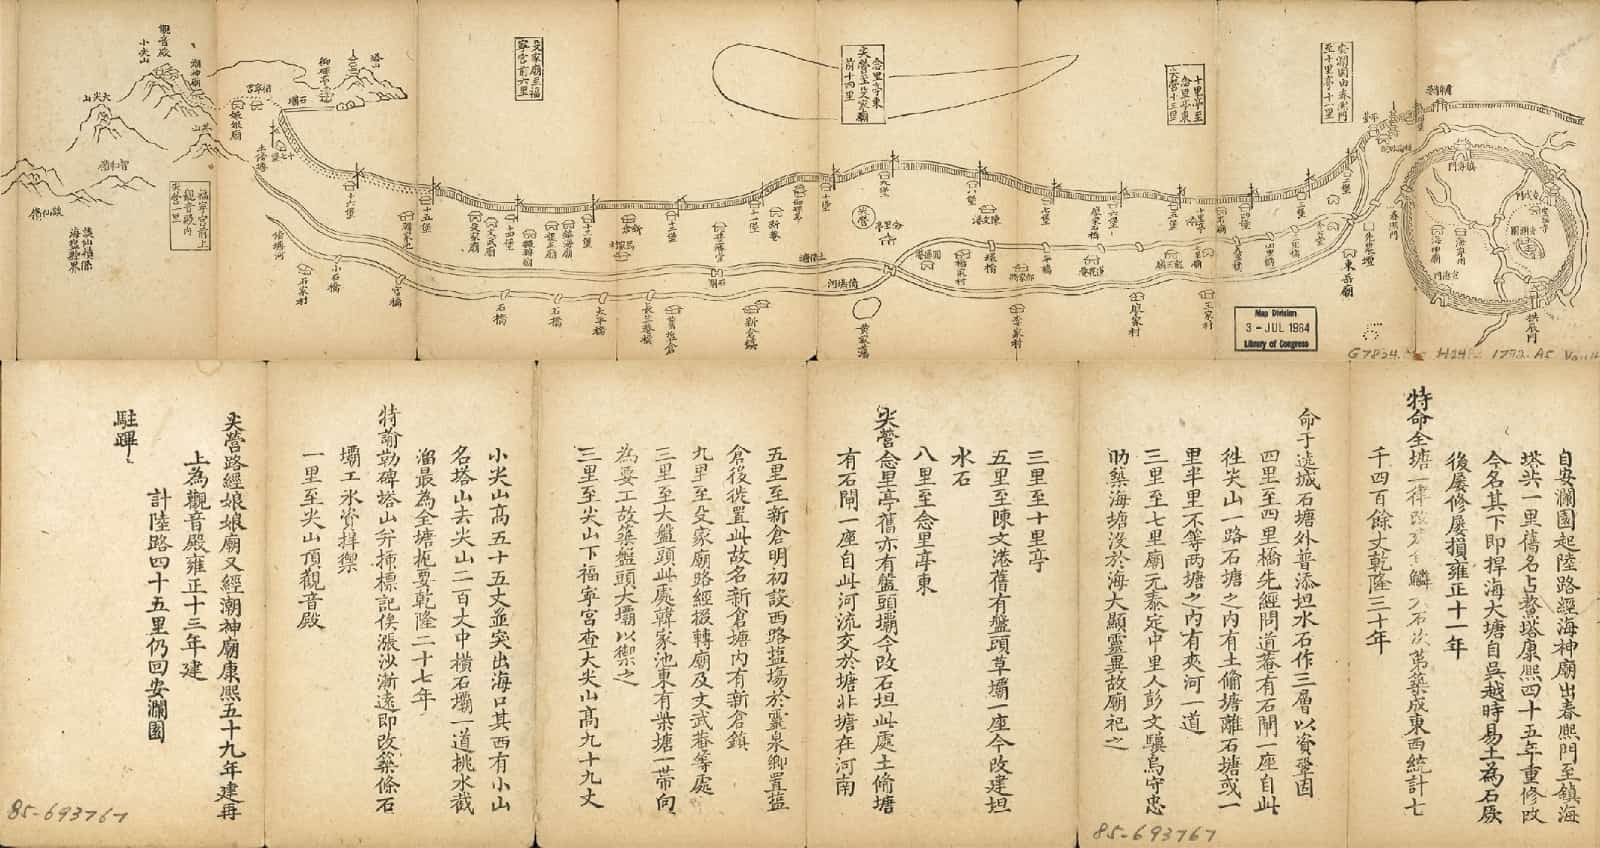 安瀾園由春熈門
至十里亭十一里
十里亭至
念里亭東
尖營十三里
念里亭東
尖營至殳家廟
前十四里
殳家廟至福
寧宮前六里
福寧宮前上
觀音殿內
尖營二里
觀音殿
小尖山
潮神廟
大尖山
塔山
石壩
娘娘廟
土備塘
十七堡
談仙嶺係
海鹽縣界
備塘河
石家村
小石橋
十六堡
十五堡
殳家廟
文武廟
十四堡
石橋
石橋
太平橋
十三堡
十二堡
石閘
舊倉
新倉鎮
十一堡
十堡
九堡
尖營
土備塘
備塘河
黄家蕩
八堡
陳文港
環橋
七堡
李家村
六堡
五堡
廖家村
七里廟
王家村
四堡
三堡
二堡
東岳廟
春熈門
鎮海門
海神廟
安瀾園
拱辰門
Map Division
3 - JUL 1964
Library of Congress
G7824. H248 1772. A5 Vault
自安瀾園起陸路經海神廟出春熈門至鎮海
塔共一里舊名占鰲塔康熈四十五年重修改
今名其下即捍海大塘自吳越時易土為石厥
後屢修屢損雍正十一年
特命全塘一律改建魚鱗大石次第築成東西統計七
千四百餘丈乾隆三十年
命于遶城石塘外普添坦水石作三層以資鞏固
四里至四里橋先經問道菴有石閘一座自此
徃尖山一路石塘之內有土備塘離石塘或一
里半里不等兩塘之內有夾河一道
三里至七里廟元泰定中里人彭文驥烏守忠
助築海塘沒於海大顯靈異故廟祀之
三里至十里亭
五里至陳文港舊有盤頭草壩一座今改建坦
水石
八里至念里亭東
尖營念里亭舊亦有盤頭壩今改石坦此處土備塘
有石閘一座自此河流交於塘北塘在河南
五里至新倉明初設西路塩塲於靈泉鄉置塩
倉後徙置此故名新倉塘內有新倉鎮
九里至殳家廟路經掇轉廟及文武菴等處
三里至大盤頭此處韓家池東有柴塘一帶向
為要工故築盤頭大壩以禦之
三里至尖山下福寧宮查大尖山高九十九丈
小尖山高五十五丈並突出海口其西有小山
名塔山去尖山二百丈中橫石壩一道挑水截
溜最為全塘扼要乾隆二十七年
特諭勒碑塔山弁揷標記俟漲沙漸遠即改築條石
壩工永資捍禦
一里至尖山頂觀音殿
尖營路經娘娘廟又經潮神廟康熈五十九年建再
上為觀音殿雍正十三年建
計陸路四十五里仍回安瀾園
駐蹕
85-693767
85-693767